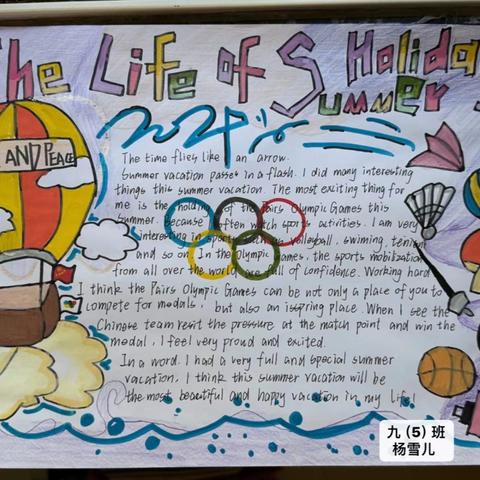 The Life of Summer Holiday
2024
AND PEACE
The time flies like an arrow.
Summer vacation passes in a flash. I did many interesting
things this summer vacation. The most exciting thing for
me is the holding of the Pairs Olympic Games this
summer. Because I often watch sports activities. I am very
interesting in sports volleyball, swiming, tennism
and so on. In the Olympic Games, the sports mobilization
from all over the world are full of confidence. Working hard
I think the Pairs Olympic Games can be not only a place of you to
compete for medals, but also an isspring place. When I see the
Chinese team resit the pressure at the match point and win the
medal, I feel very proud and excited.
In a word. I had a very full and special summer
vacation. I think this summer vacation will be
the most beautiful and happy vacation in my life!
九（5）班
杨雪儿